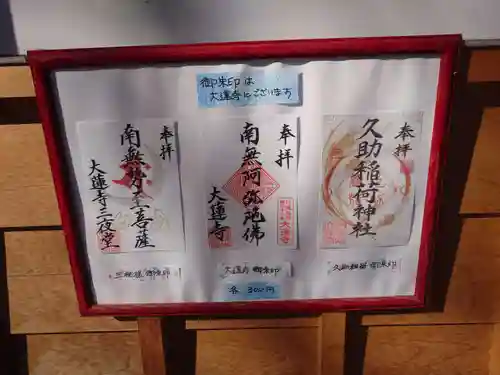 御朱印は
大蓮寺にございます
奉拝
久助稲荷神社
奉拝
南無阿弥陀佛
大蓮寺
奉拝
南無勢至菩薩
大蓮寺三夜堂
三夜堂 御朱印
大蓮寺 御朱印
久助稲荷 御朱印
各 300円